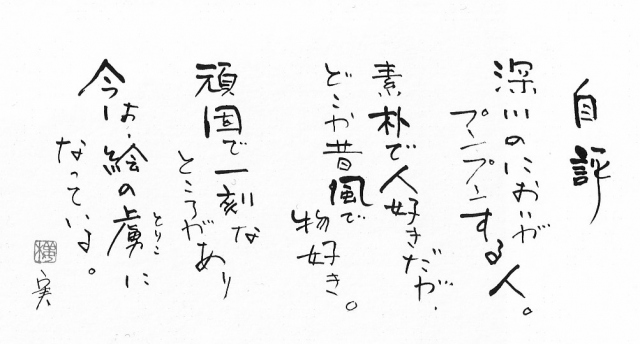 自評
深川のにおいが
プンプンする人。
素朴で人好きだが、
どこか昔風で
物好き。
頑固で一刻な
ところがあり
今は、絵の虜に
とりこ
なっている。
実